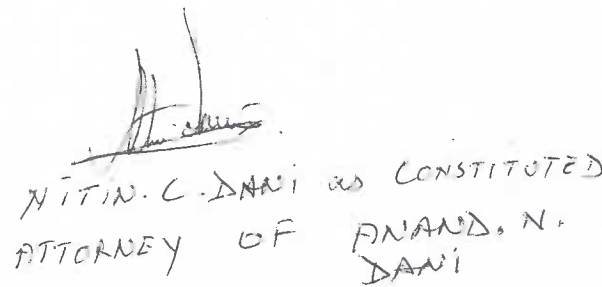 NITIN. C. DANI as CONSTITUTED
ATTORNEY OF ANAND. N.
DANI